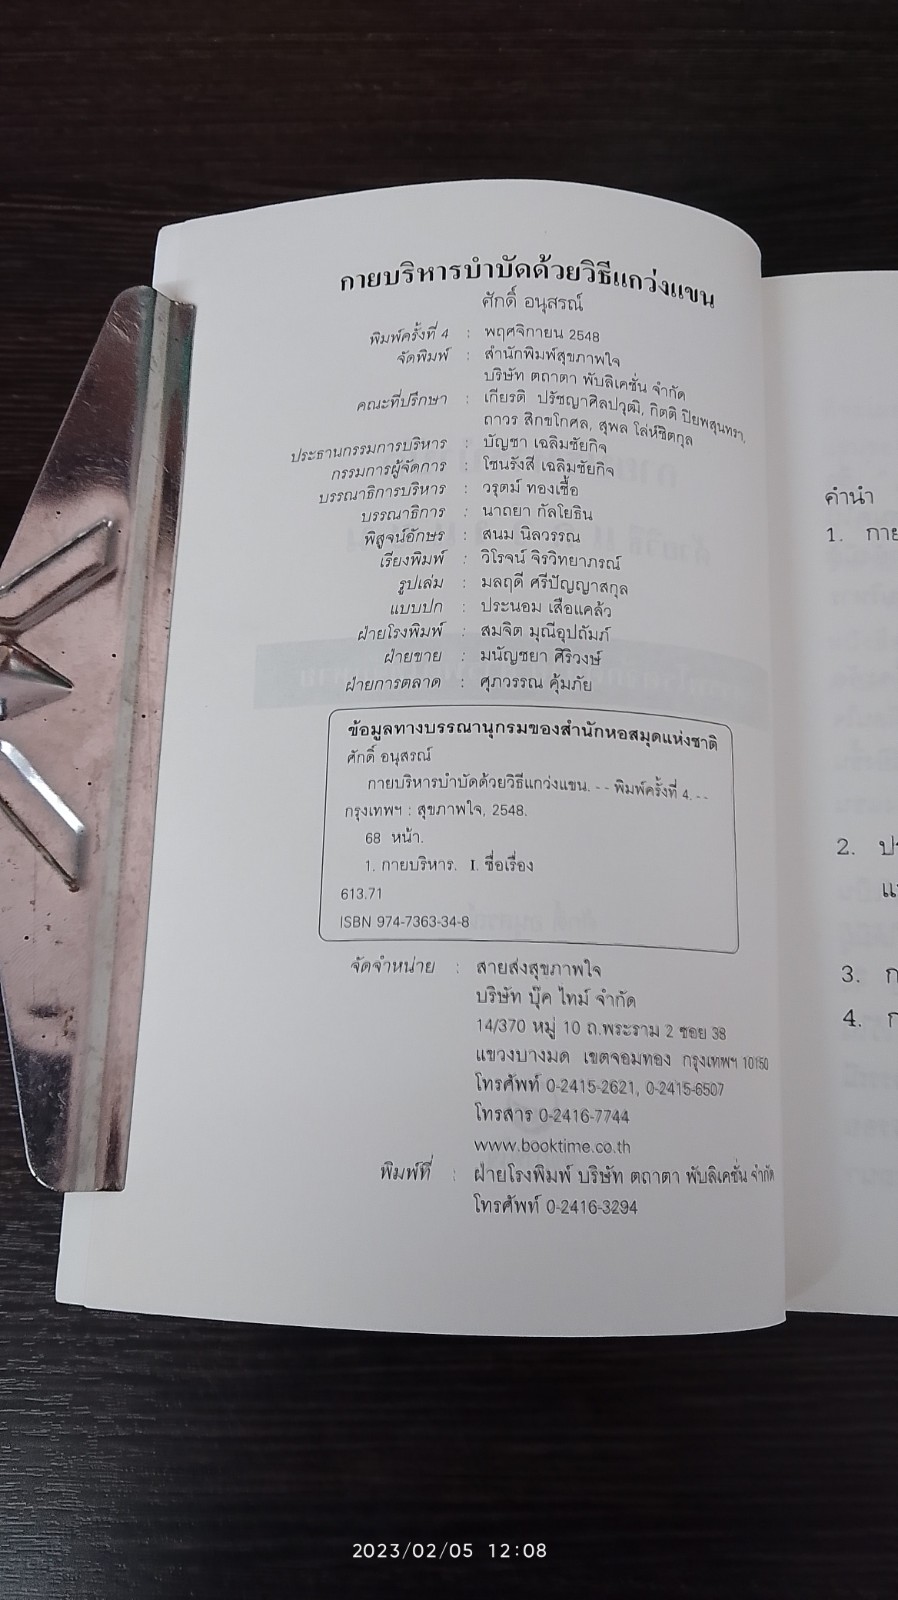 กายบริหารบำบัดด้วยวิธีแกว่งแขน
ศักดิ์ อนุสรณ์
พิมพ์ครั้งที่ 4 : พฤศจิกายน 2548
จัดพิมพ์ : สำนักพิมพ์สุขภาพใจ
บริษัท ตถาตา พับลิเคชั่น จำกัด
คณะที่ปรึกษา : เกียรติ ปรัชญาศิลปวุฒิ, กิตติ ปิยพสุนทรา,
ถาวร สิกขโกศล, สุพล โล่ห์ชิตกุล
ประธานกรรมการบริหาร : บัญชา เฉลิมชัยกิจ
กรรมการผู้จัดการ : โชนรังสี เฉลิมชัยกิจ
บรรณาธิการบริหาร : วรุตม์ ทองเชื้อ
บรรณาธิการ : นาถยา กัลโยธิน
พิสูจน์อักษร : สนม นิลวรรณ
เรียงพิมพ์ : วิโรจน์ จิรวิทยาภรณ์
รูปเล่ม : มลฤดี ศรีปัญญาสกุล
แบบปก : ประนอม เสือแคล้ว
ฝ่ายโรงพิมพ์ : สมจิต มุณีอุปถัมภ์
ฝ่ายขาย : มนัญชยา ศิริวงษ์
ฝ่ายการตลาด : ศุภวรรณ คุ้มภัย
ข้อมูลทางบรรณานุกรมของสำนักหอสมุดแห่งชาติ
ศักดิ์ อนุสรณ์
กายบริหารบำบัดด้วยวิธีแกว่งแขน. -- พิมพ์ครั้งที่ 4. --
กรุงเทพฯ : สุขภาพใจ, 2548.
68 หน้า.
1. กายบริหาร. I. ชื่อเรื่อง
613.71
ISBN 974-7363-34-8
จัดจำหน่าย : สายส่งสุขภาพใจ
บริษัท บุ๊ค ไทม์ จำกัด
14/370 หมู่ 10 ถ.พระราม 2 ซอย 38
แขวงบางมด เขตจอมทอง กรุงเทพฯ 10150
โทรศัพท์ 0-2415-2621, 0-2415-6507
โทรสาร 0-2416-7744
www.booktime.co.th
พิมพ์ที่ : ฝ่ายโรงพิมพ์ บริษัท ตถาตา พับลิเคชั่น จำกัด
โทรศัพท์ 0-2416-3294
คำนำ
1. กาย
2. ปร
แ
3. ก
4. ก
2023/02/05 12:08